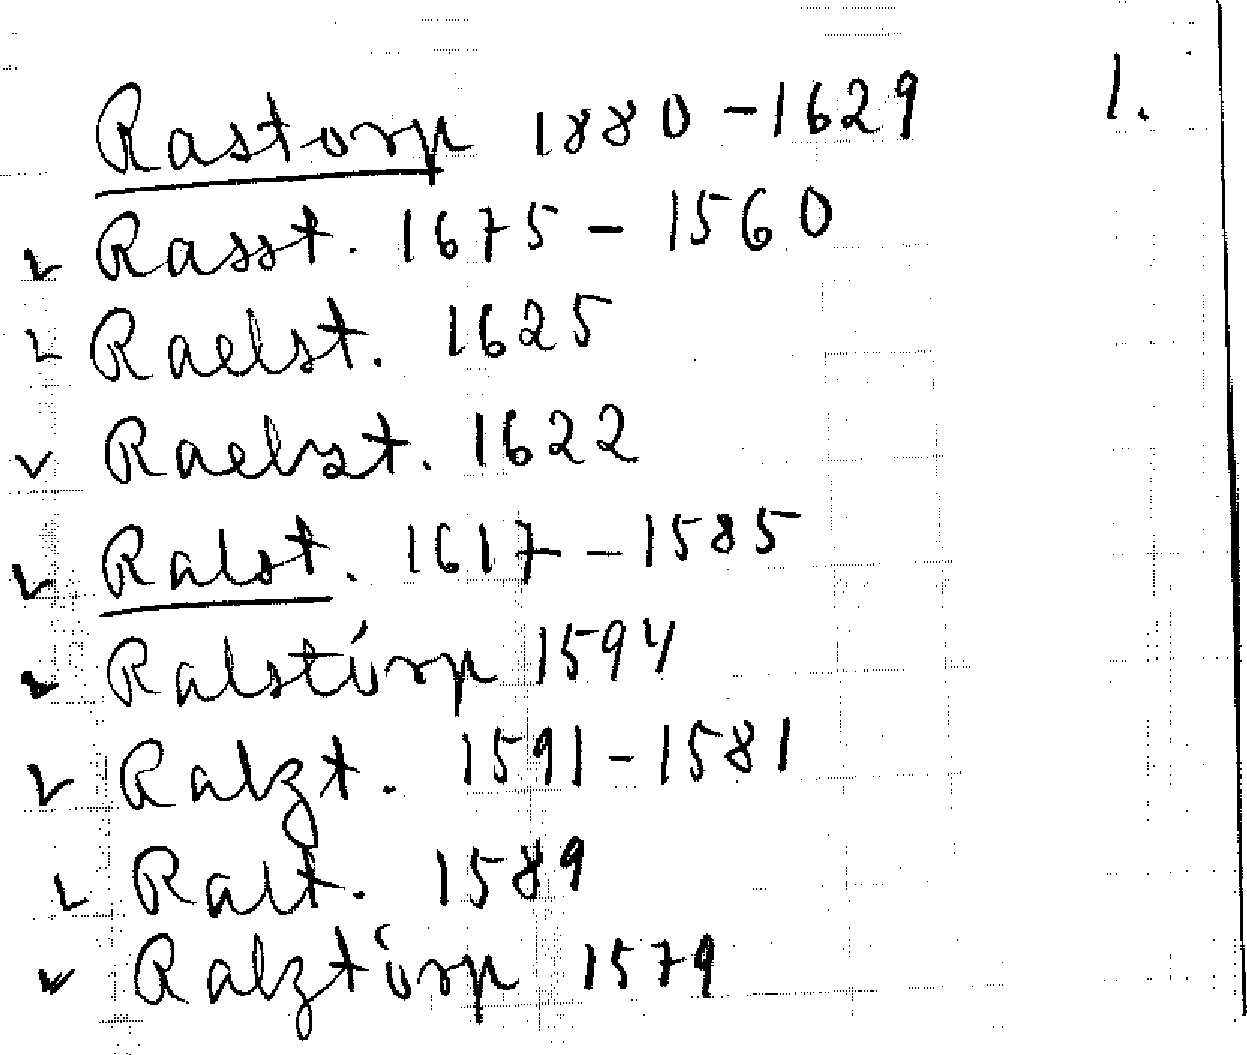 Rastorp 1880-1629 1.
Rasst. 1675 - 1560
Raelst. 1625
Raelzt. 1622
Ralst. 1617 - 1585
Ralstúrp 1594
Ralzt. 1591-1581
Ralt. 1589
Ralztúrp 1579